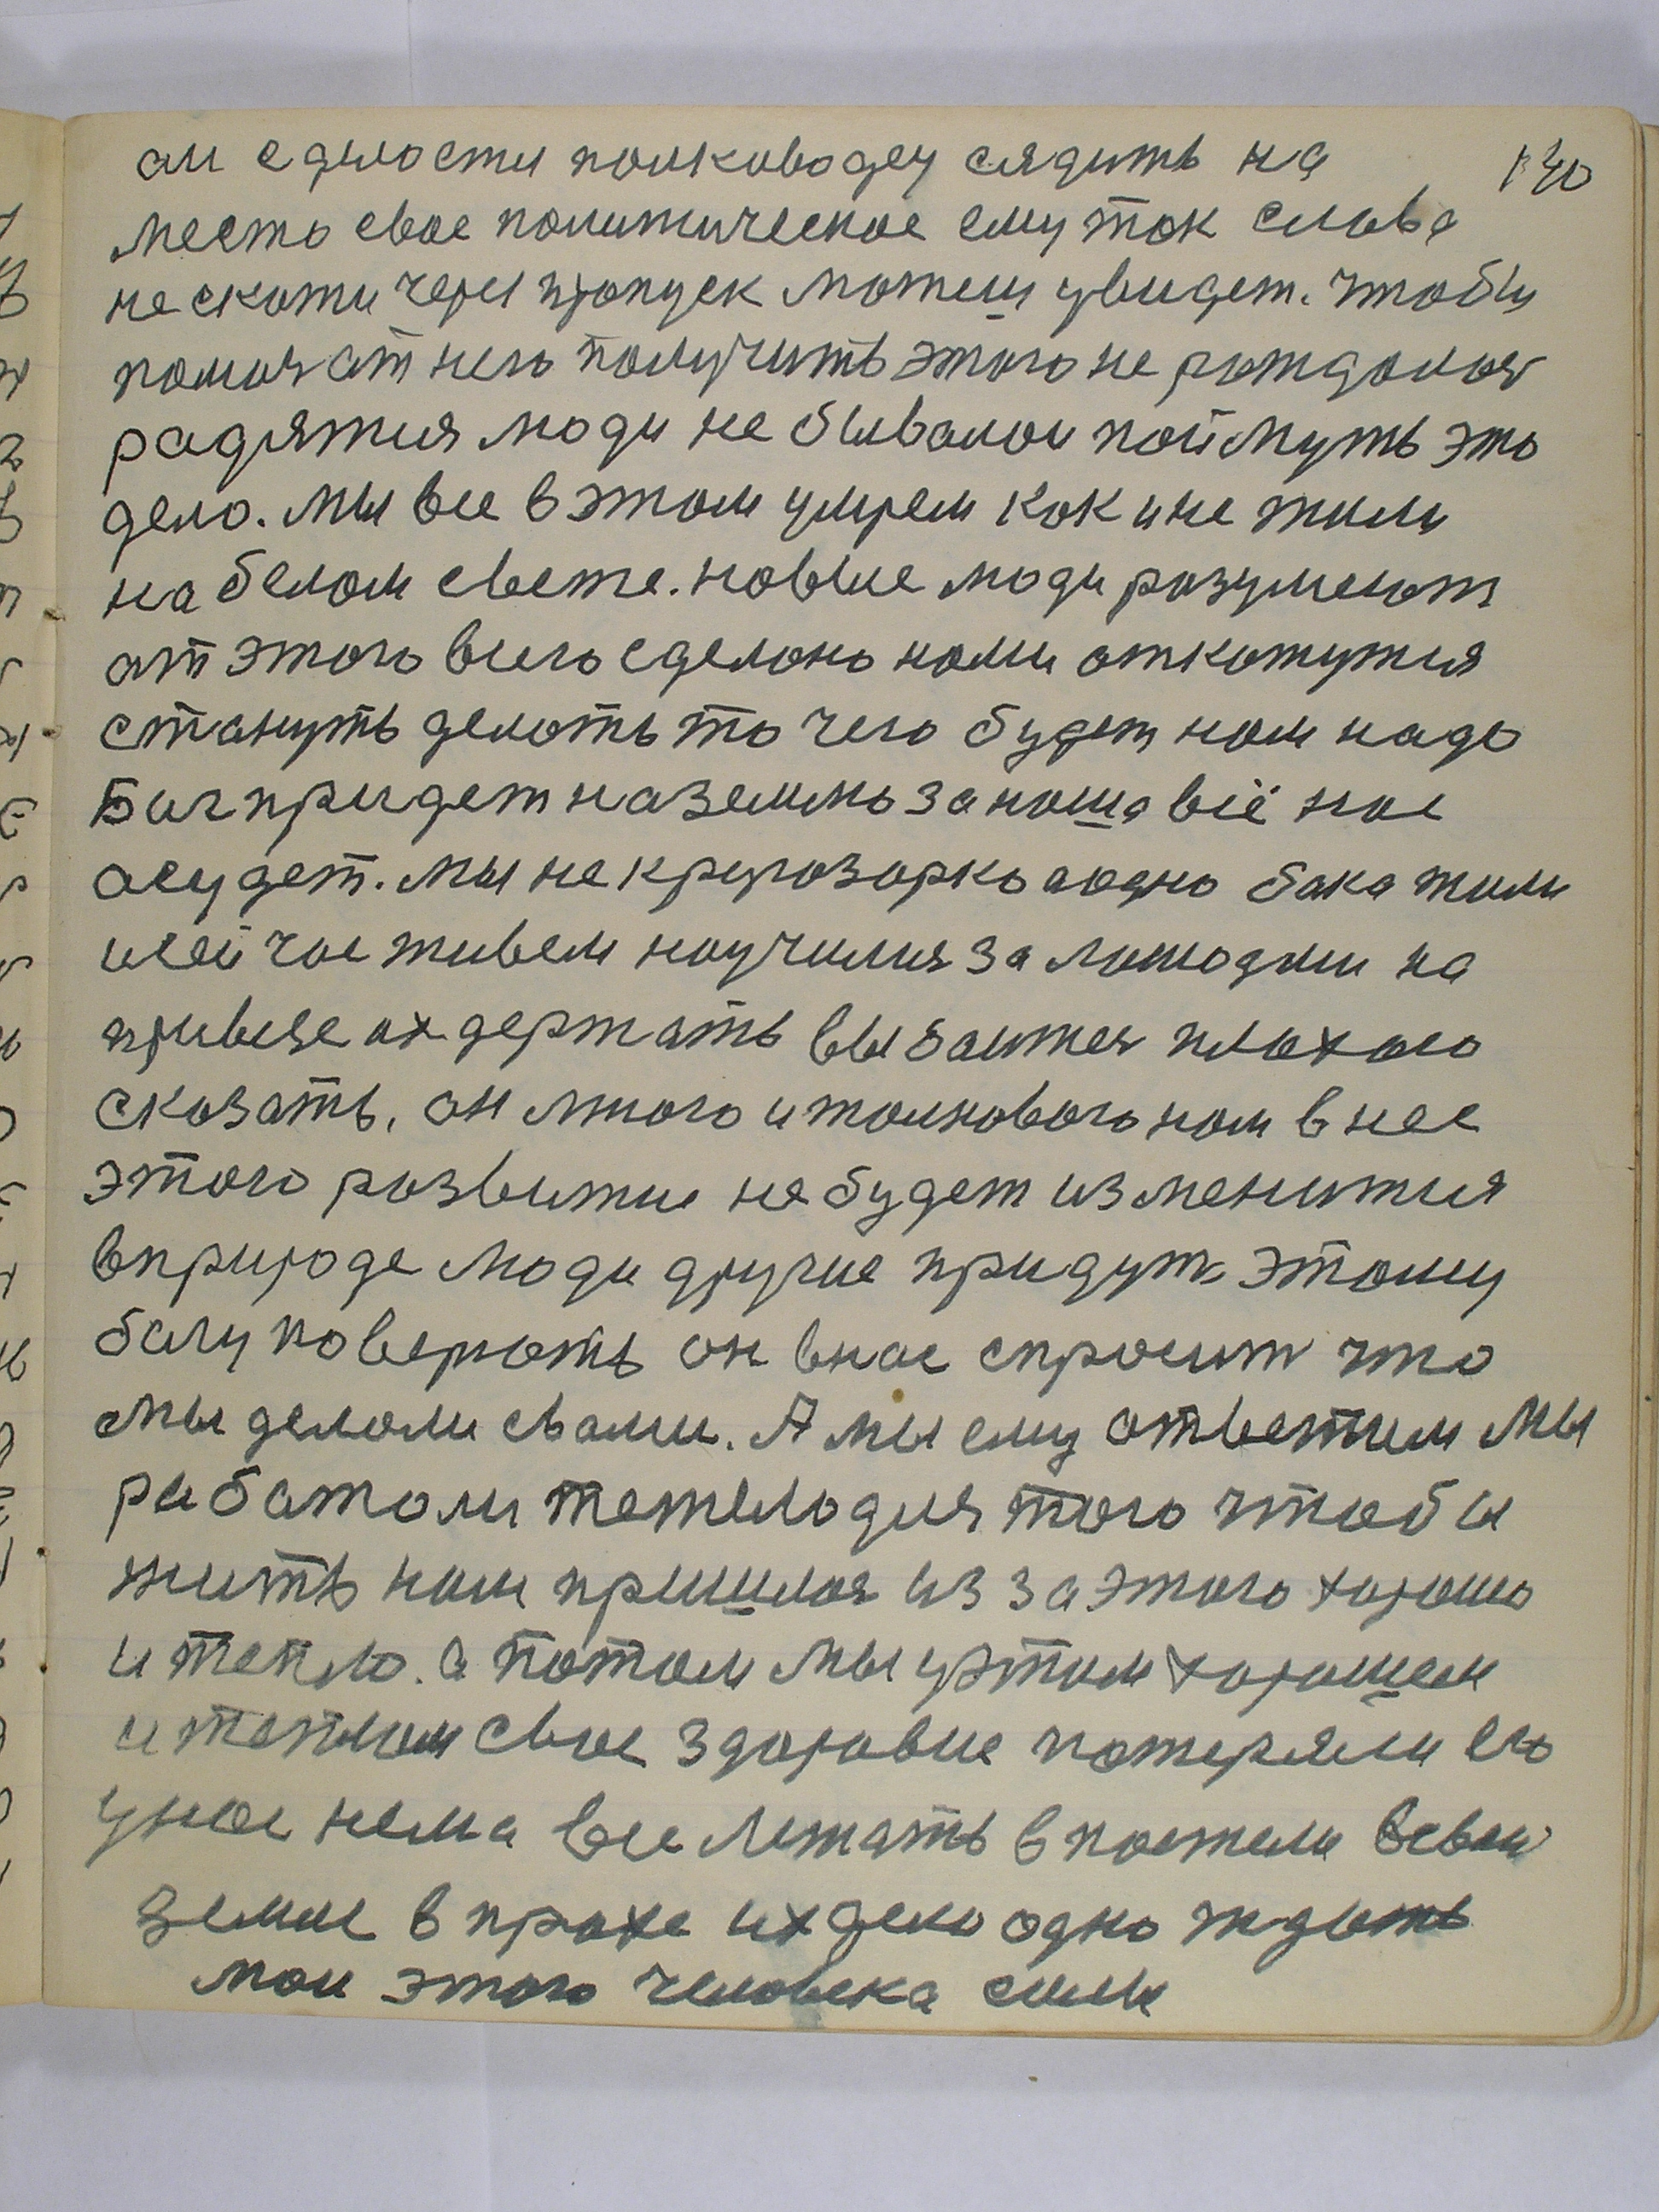 он едность полководец сядить на 140
место свое политическое ему так слова
не скажи через пропуск можеш увидет. чтобы
помоч ат него получить этого не рождалоя
радятия люди не бывалои поймуть это
дело. мы все в этом умрем как и не жили
на белом свете. новые люди разумеют
ат этого всего сделано нами откажутся
стануть делать то чего будет нам надо
Бог придет на землю за наша всё нас
асудет. мы не кругозорко аодно бока жили
и сейчас живем научился за лошадьми на
привезе их держать вы баитея плохого
сказать. он много и толкового нам в нее
этого развитии не будет изменится
в природе люди другие придут этому
богу поверять он в нас спросит что
мы делали с вами. А мы ему ответим мы
работали тежело для того чтобы
жить нам пришлоя из за этого хорошо
и тепло. а потом мы у этом хорошем
и теплом свое здоровие потеряли его
у нас нема все лежать в постели в свои
земле в прахе их дело одно ждать
мои этого человека силы